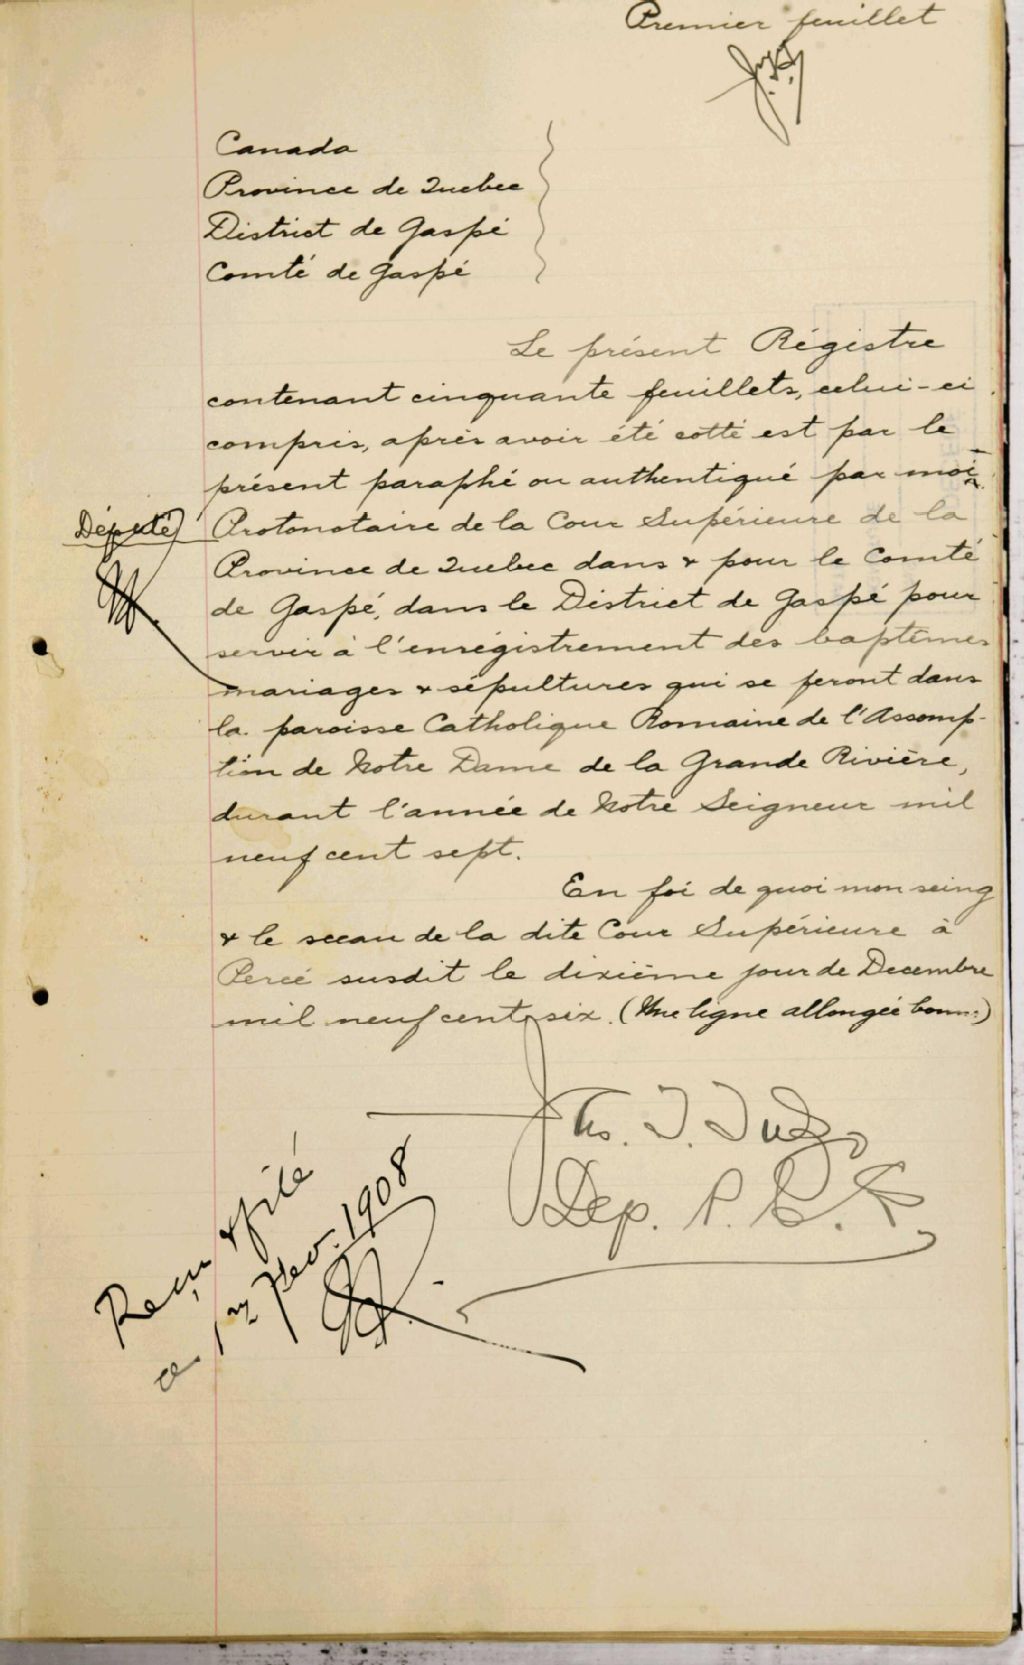 Premier feuillet
Canada
Province de Quebec
District de Gaspé
Comté de Gaspé
Le présent Régistre
contenant cinquante feuillets, celui-ci
compris, après avoir été cotté est par le
présent paraphé ou authentiqué par moi
Député
Protonotaire de la Cour Supérieure de la
Province de Quebec dans & pour le Comté
de Gaspé, dans le District de Gaspé pour
servir à l'enrégistrement des baptêmes
mariages & sépultures qui se feront dans
la paroisse Catholique Romaine de l'Assomp-
tion de Notre Dame de la Grande Rivière,
durant l'année de Notre Seigneur mil
neuf cent sept.
En foi de quoi mon seing
& le sceau de la dite Cour Supérieure à
Percé susdit le dixième jour de Decembre
mil neuf cent six. (Une ligne allongée bonne)
Dep. P.
Reçu & filé
ce 1908